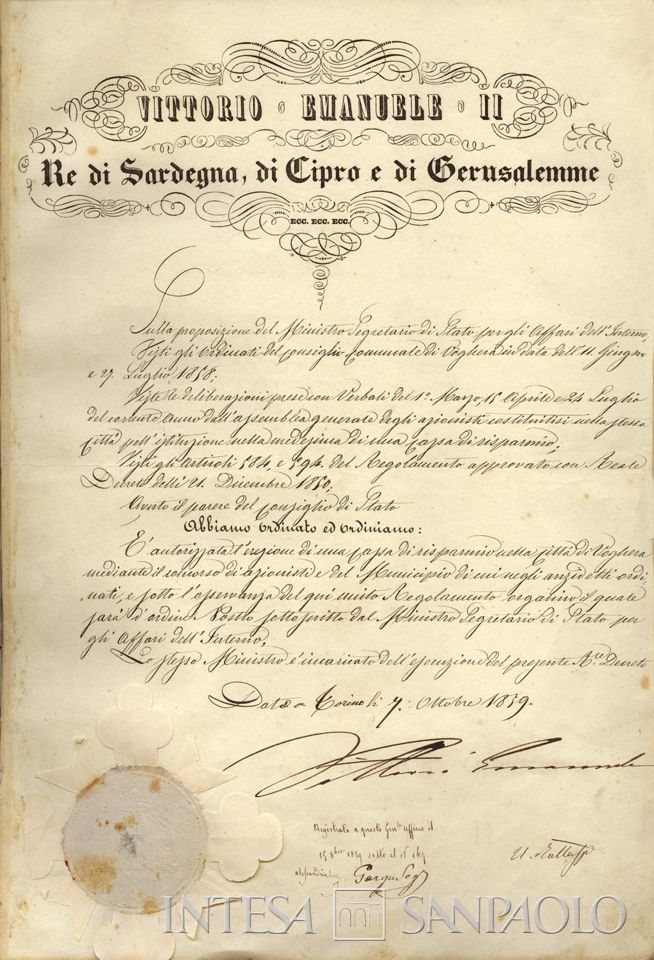 VITTORIO EMANUELE II
Re di Sardegna, di Cipro e di Gerusalemme
ECC. ECC. ECC.
Sulla proposizione del Ministro Segretario di Stato per gli Affari dell'Interno,
Visti gli Ordinati del Consiglio Comunale di Voghera in data dell'11 Giugno
e 27 Luglio 1858;
Viste le deliberazioni prese con Verbali del 1º Marzo, 15 Aprile e 24 Luglio
del corrente anno dall'assemblea generale degli azionisti costituitisi nella stessa
Città pell'istituzione nella medesima di una Cassa di risparmio;
Visti gli articoli 584, e 594 del Regolamento approvato con Reale
Decreto delli 21. Dicembre 1850;
Avuto il parere del Consiglio di Stato
Abbiamo Ordinato ed Ordiniamo:
E' autorizzata l'erezione di una Cassa di risparmio nella Città di Voghera
mediante il concorso di azionisti e del Municipio di cui negli anzidetti ordi
nati, e sotto l'osservanza del qui unito Regolamento organico il quale
sarà d'ordine Nostro sottoscritto dal Ministro Segretario di Stato per
gli Affari dell'Interno;
Lo stesso Ministro è incaricato dell'esecuzione del presente Rle Decreto
Dato a Torino li 7. Ottobre 1859.
Vittorio Emanuele
Registrato a questo uffizio il
15 8bre 1859 sotto il nº
U. Rattazzi
INTESA SANPAOLO